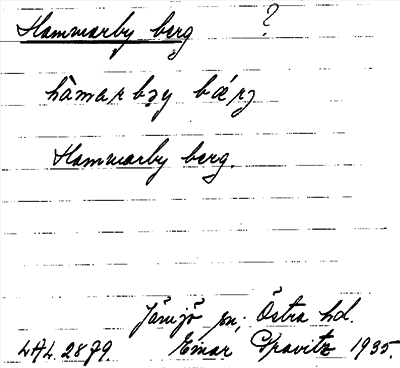 Hammarby berg ?
hàmarbəy bǽrj
Hammarby berg.
Jämjö sn; Östra hd.
LAL. 2879 Einar 1935.